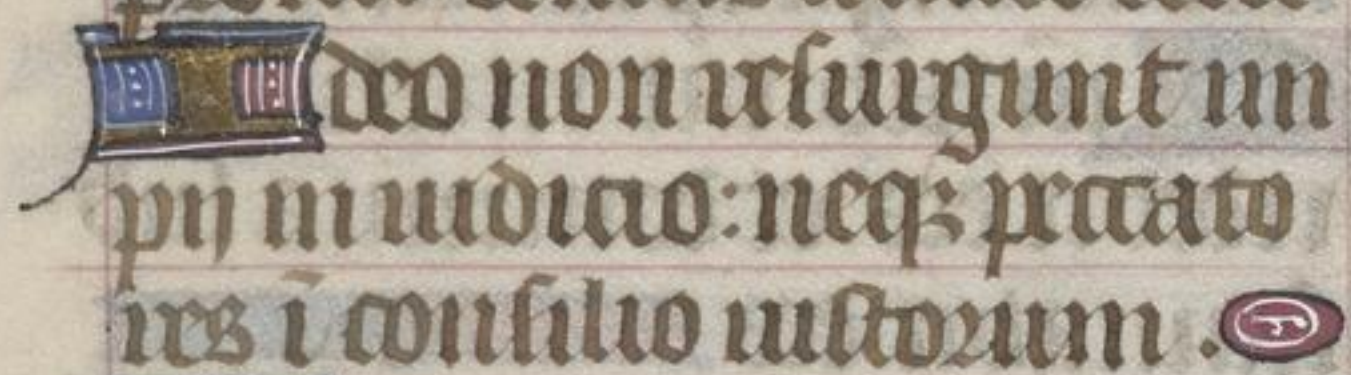 Ideo non resurgunt im
pij in iudicio: neq; peccato
res ī consilio iustorum .